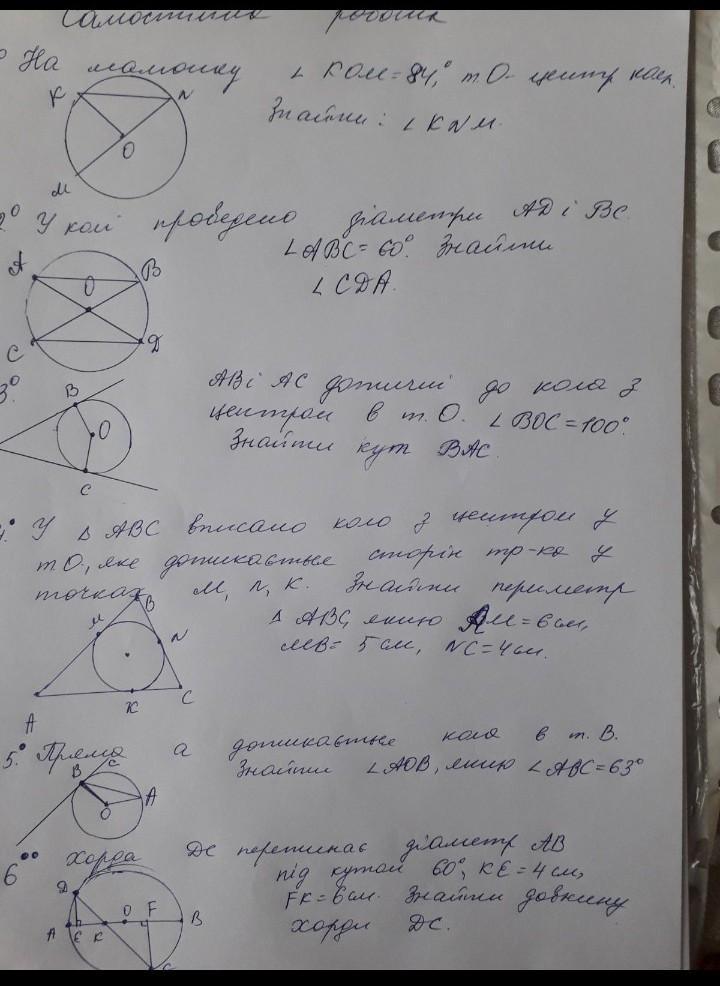 Самостійна робота
1° На малюнку ∠KOM=84°, т.О- центр кола.
Знайти: ∠KNM.
K N
O
M
2° У колі проведено діаметри AD і BC.
∠ABC=60°. Знайти
∠CDA.
A B
O
C D
3°. AB і AC дотичні до кола з
центром в т.О. ∠BOC=100°.
Знайти кут BAC.
B
O
C
4.° У △ABC вписано коло з центром у
т.О., яке дотикається сторін тр-ка у
точках M, N, K. Знайти периметр
△ABC, якщо AM=6см,
MB=5см, NC=4см.
B
M N
A K C
5.° Пряма a дотикається кола в т. B.
Знайти ∠AOB, якщо ∠ABC=63°
B C
A
O
6°° Хорда DC перетинає діаметр AB
під кутом 60°, KE=4см,
FK=6см. Знайти довжину
хорди DC.
D
A E K O F B
C